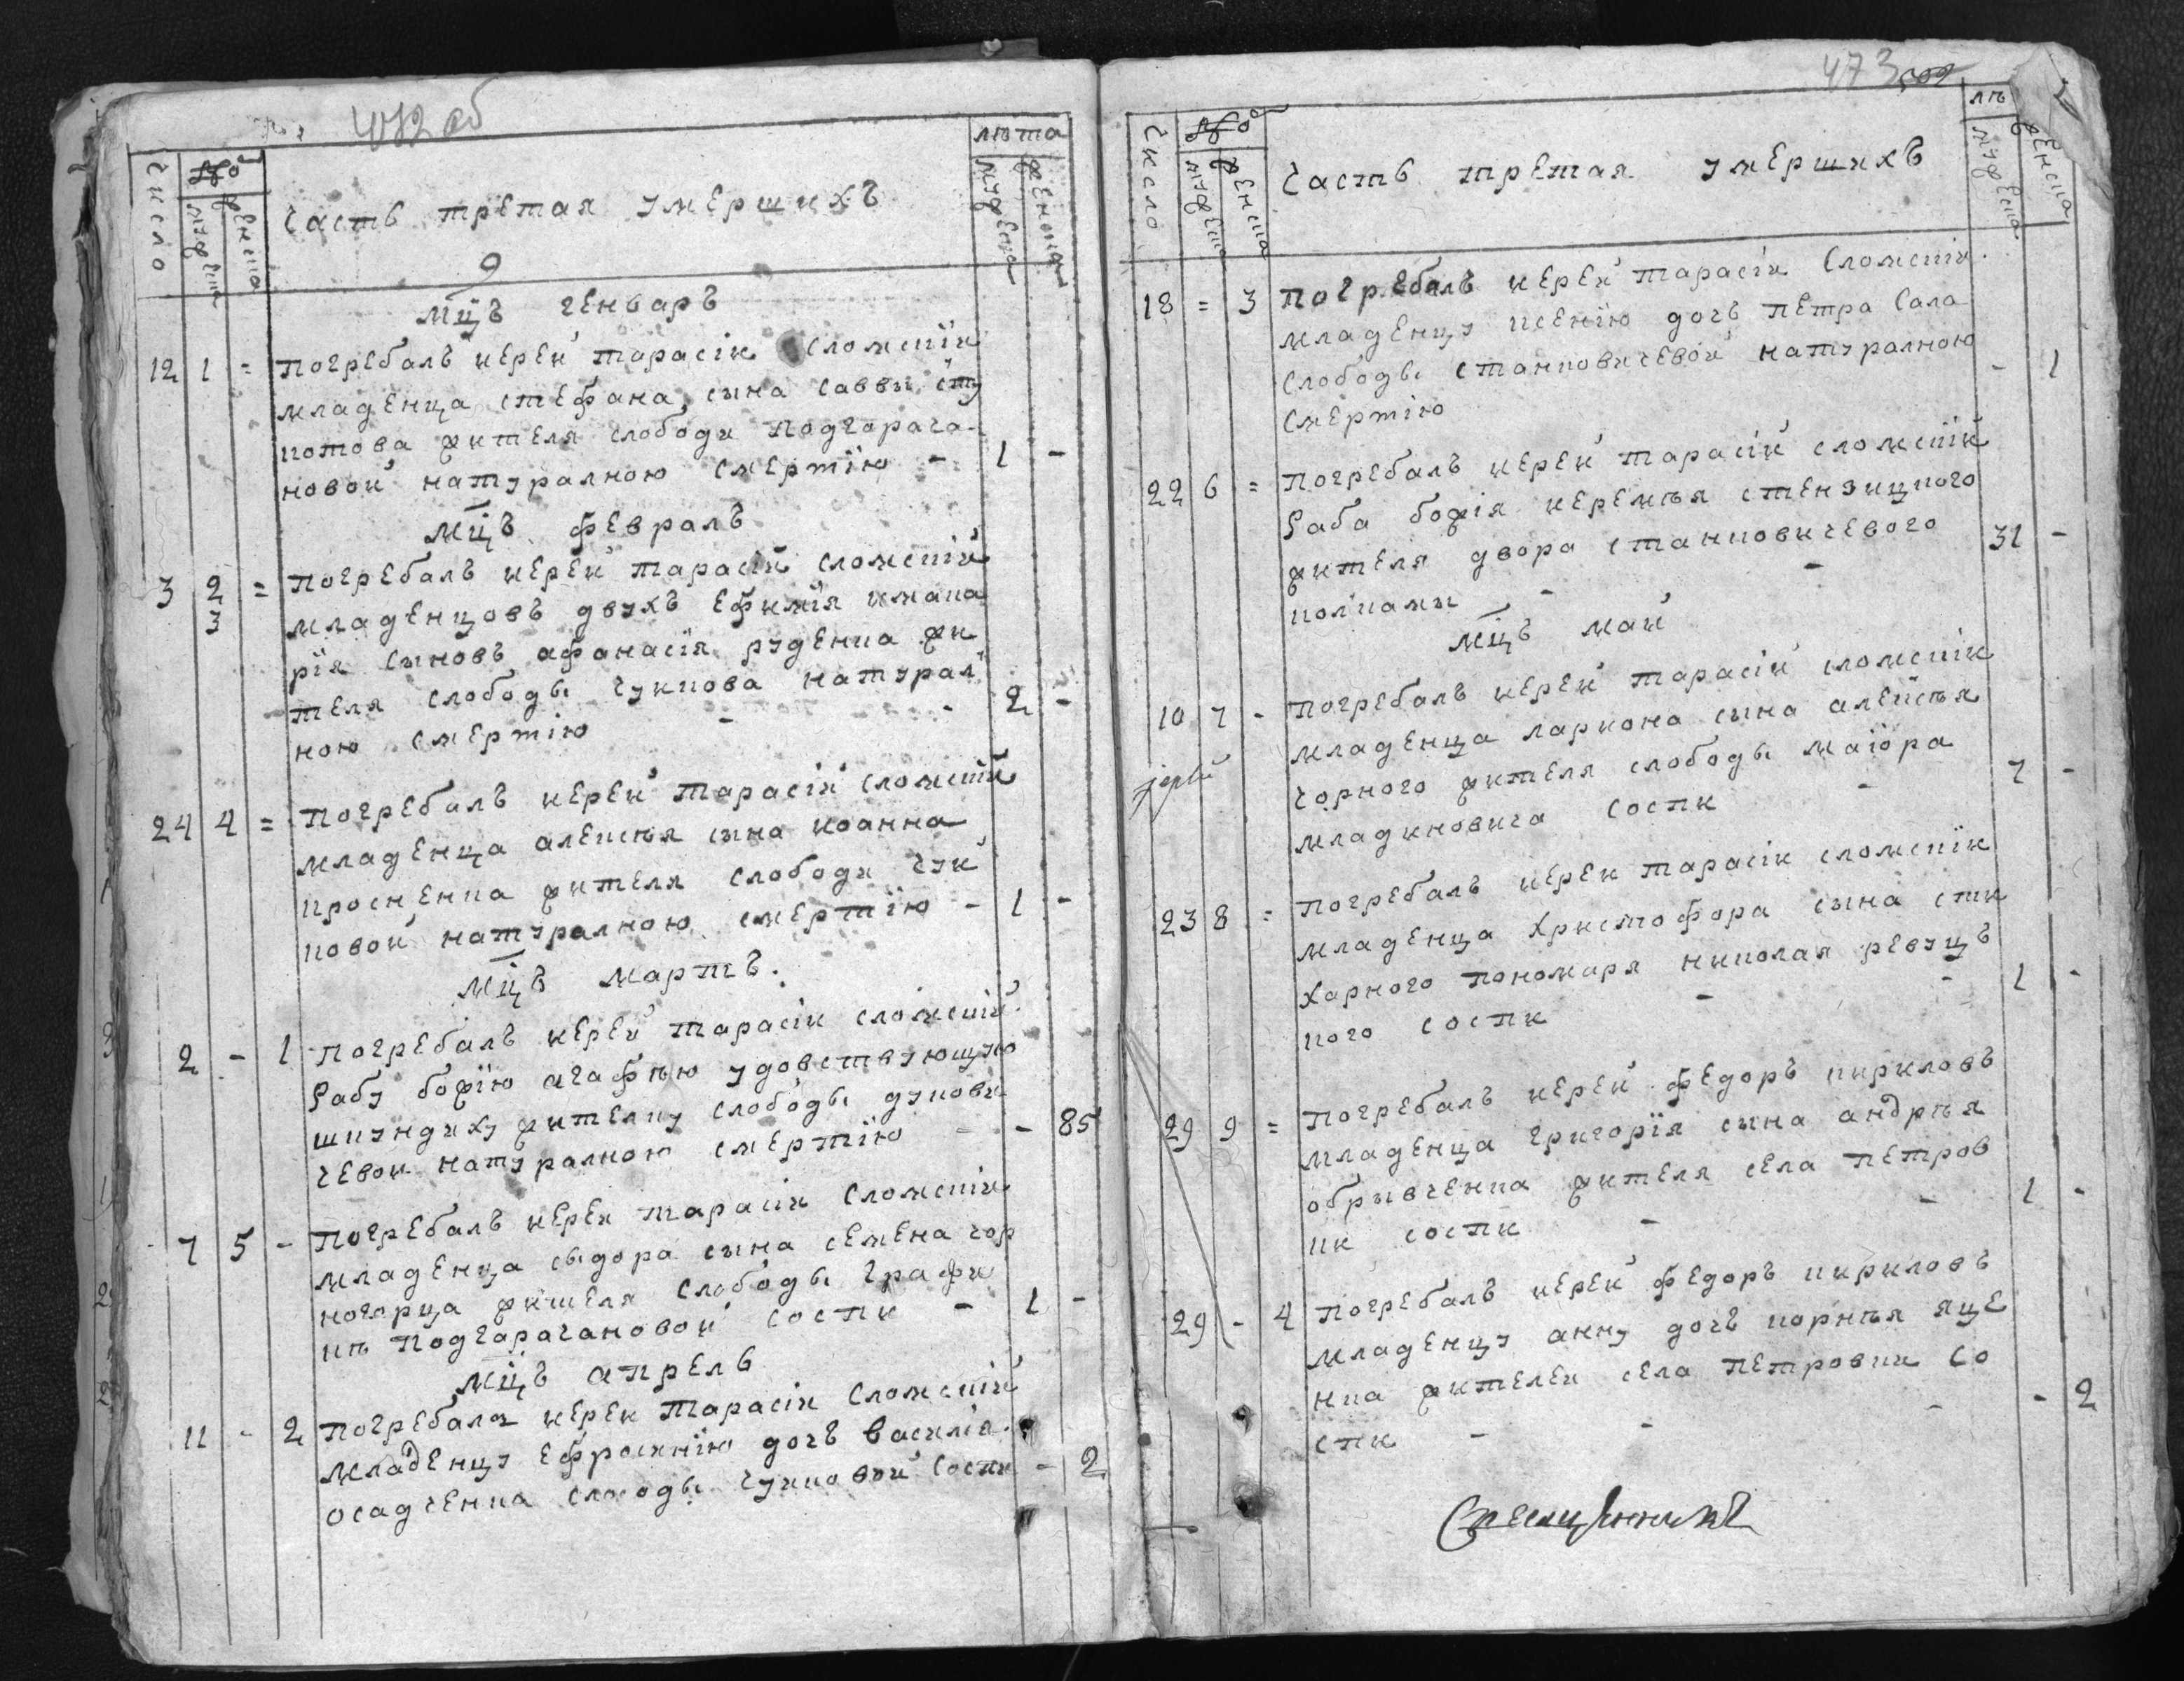 472 об
Число № мужеска женска
Часть третая умершихъ
лѣта мужеска женска
Мцъ генваръ
12 1 = Погребалъ иерей тарасіи Сломскїи
младенца стефана сына саввы
жителя слободи Подгорача-
новой натуралною смертїю - 1 -
Мцъ февралъ
3 2 = Погребалъ иерей тарасїй сломскїй
3 младенцовъ двухъ Ефимїя имака
рїя сыновъ афанасїя руденка жи
теля слободы чукнова натурал
ною смертїю - - 2 -
24 4 = Погребалъ иерей тарасїй сломскїй
младенца алексѣя сына иоанна
жителя слободи чук
новой натуралною смертїю - 1 -
Мцъ мартъ.
2 - 1 Погребалъ иерей тарасіи сломскїй
Рабу божїю агафїю удовствующую
шпундиху жителку слободы дукови
чевой натуралною смертїю - - 85
7 5 - Погребалъ иерей тарасіи сломскїи
младенца сыдора сына семена чор
ногорца жителя слободы графи
нѣ Подгорачановой соспи - 1 -
Мцъ апрель
11 - 2 Погребалъ иерей тарасіи Сломскїй
младенцу Ефросинїю дочъ василїя
осадченка слободы чукновой соспи - 2
473 502
Число № мужеска женска
Часть третая умершихъ
лѣ мужеска женска
18 = 3 Погребалъ иерей тарасіи Сломскїи
младенцу ксенїю дочъ петра Сала
слободы станковичевой натуралною - 1
смертїю
22 6 = Погребалъ иерей тарасїй сломскїй
Раба божїя иеремѣя стензицкого
жителя двора станковичевого 31 -
колками - -
Мцъ май
10 7 - Погребалъ иерей тарасїй сломскїи
младенца лариона сына алексѣя
чорного жителя слободы маїора
младиновича соспи - 7 -
23 8 = Погребалъ иерей тарасіи сломскїи
младенца христофора сына сти
харного пономаря николая ревуц
кого соспи - - 1 -
29 9 = Погребалъ иерей федоръ кириловъ
младенца григорїя сына андрѣя
обрывченка жителя села петров
ки соспи - - 1 -
29 - 4 Погребалъ иерей федоръ кириловъ
младенцу анну дочъ корнѣя яце
нка жителей села петровки со
спи - - - - 2
Священникъ